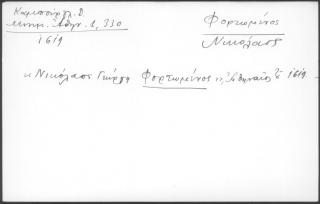 Καμπούρογλ. Δ.
Μνημ. Ἀθην. 1, 330
1619
Φορτωμένος
Νικόλαος
κ Νικόλαος Γιώργη Φορτωμένος Ἀθηναῖος 1619